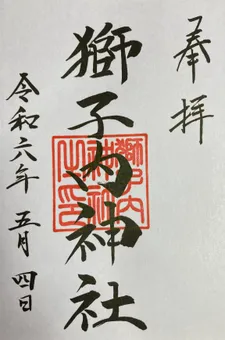 奉拝
獅子内神社
獅子内
神社
之印
令和六年 五月 四日